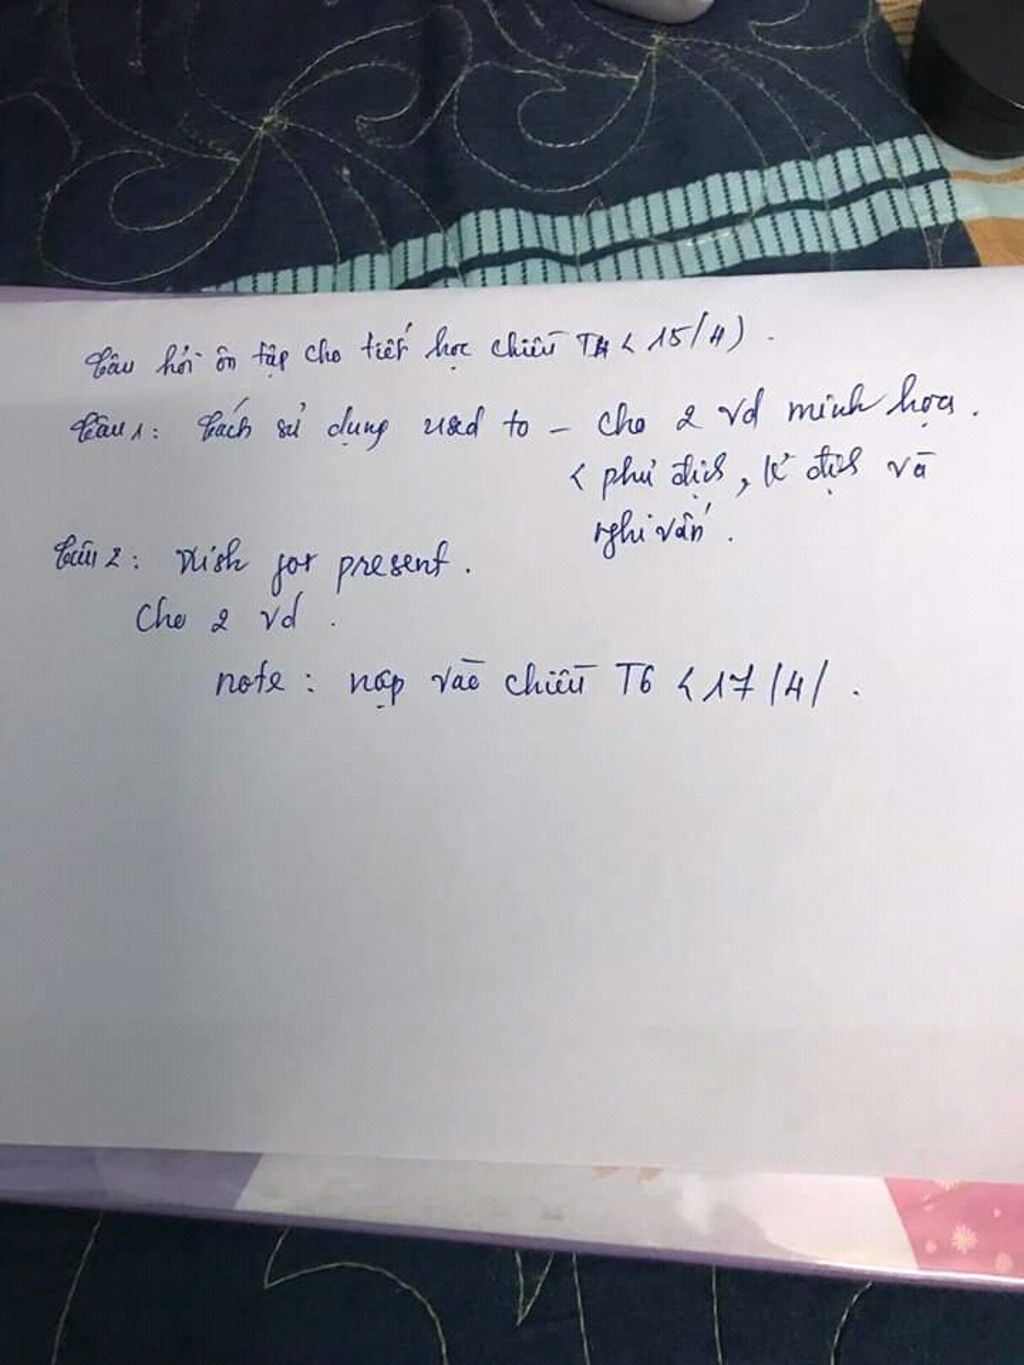 Câu hỏi ôn tập cho tiết học chiều T4 < 15/4) .
Câu 1 : Cách sử dụng used to - Cho 2 vd minh họa .
< phủ định, k đ định và
nghi vấn .
Câu 2 : Wish for present .
Cho 2 vd .
note : nộp vào chiều T6 < 17/4/ .